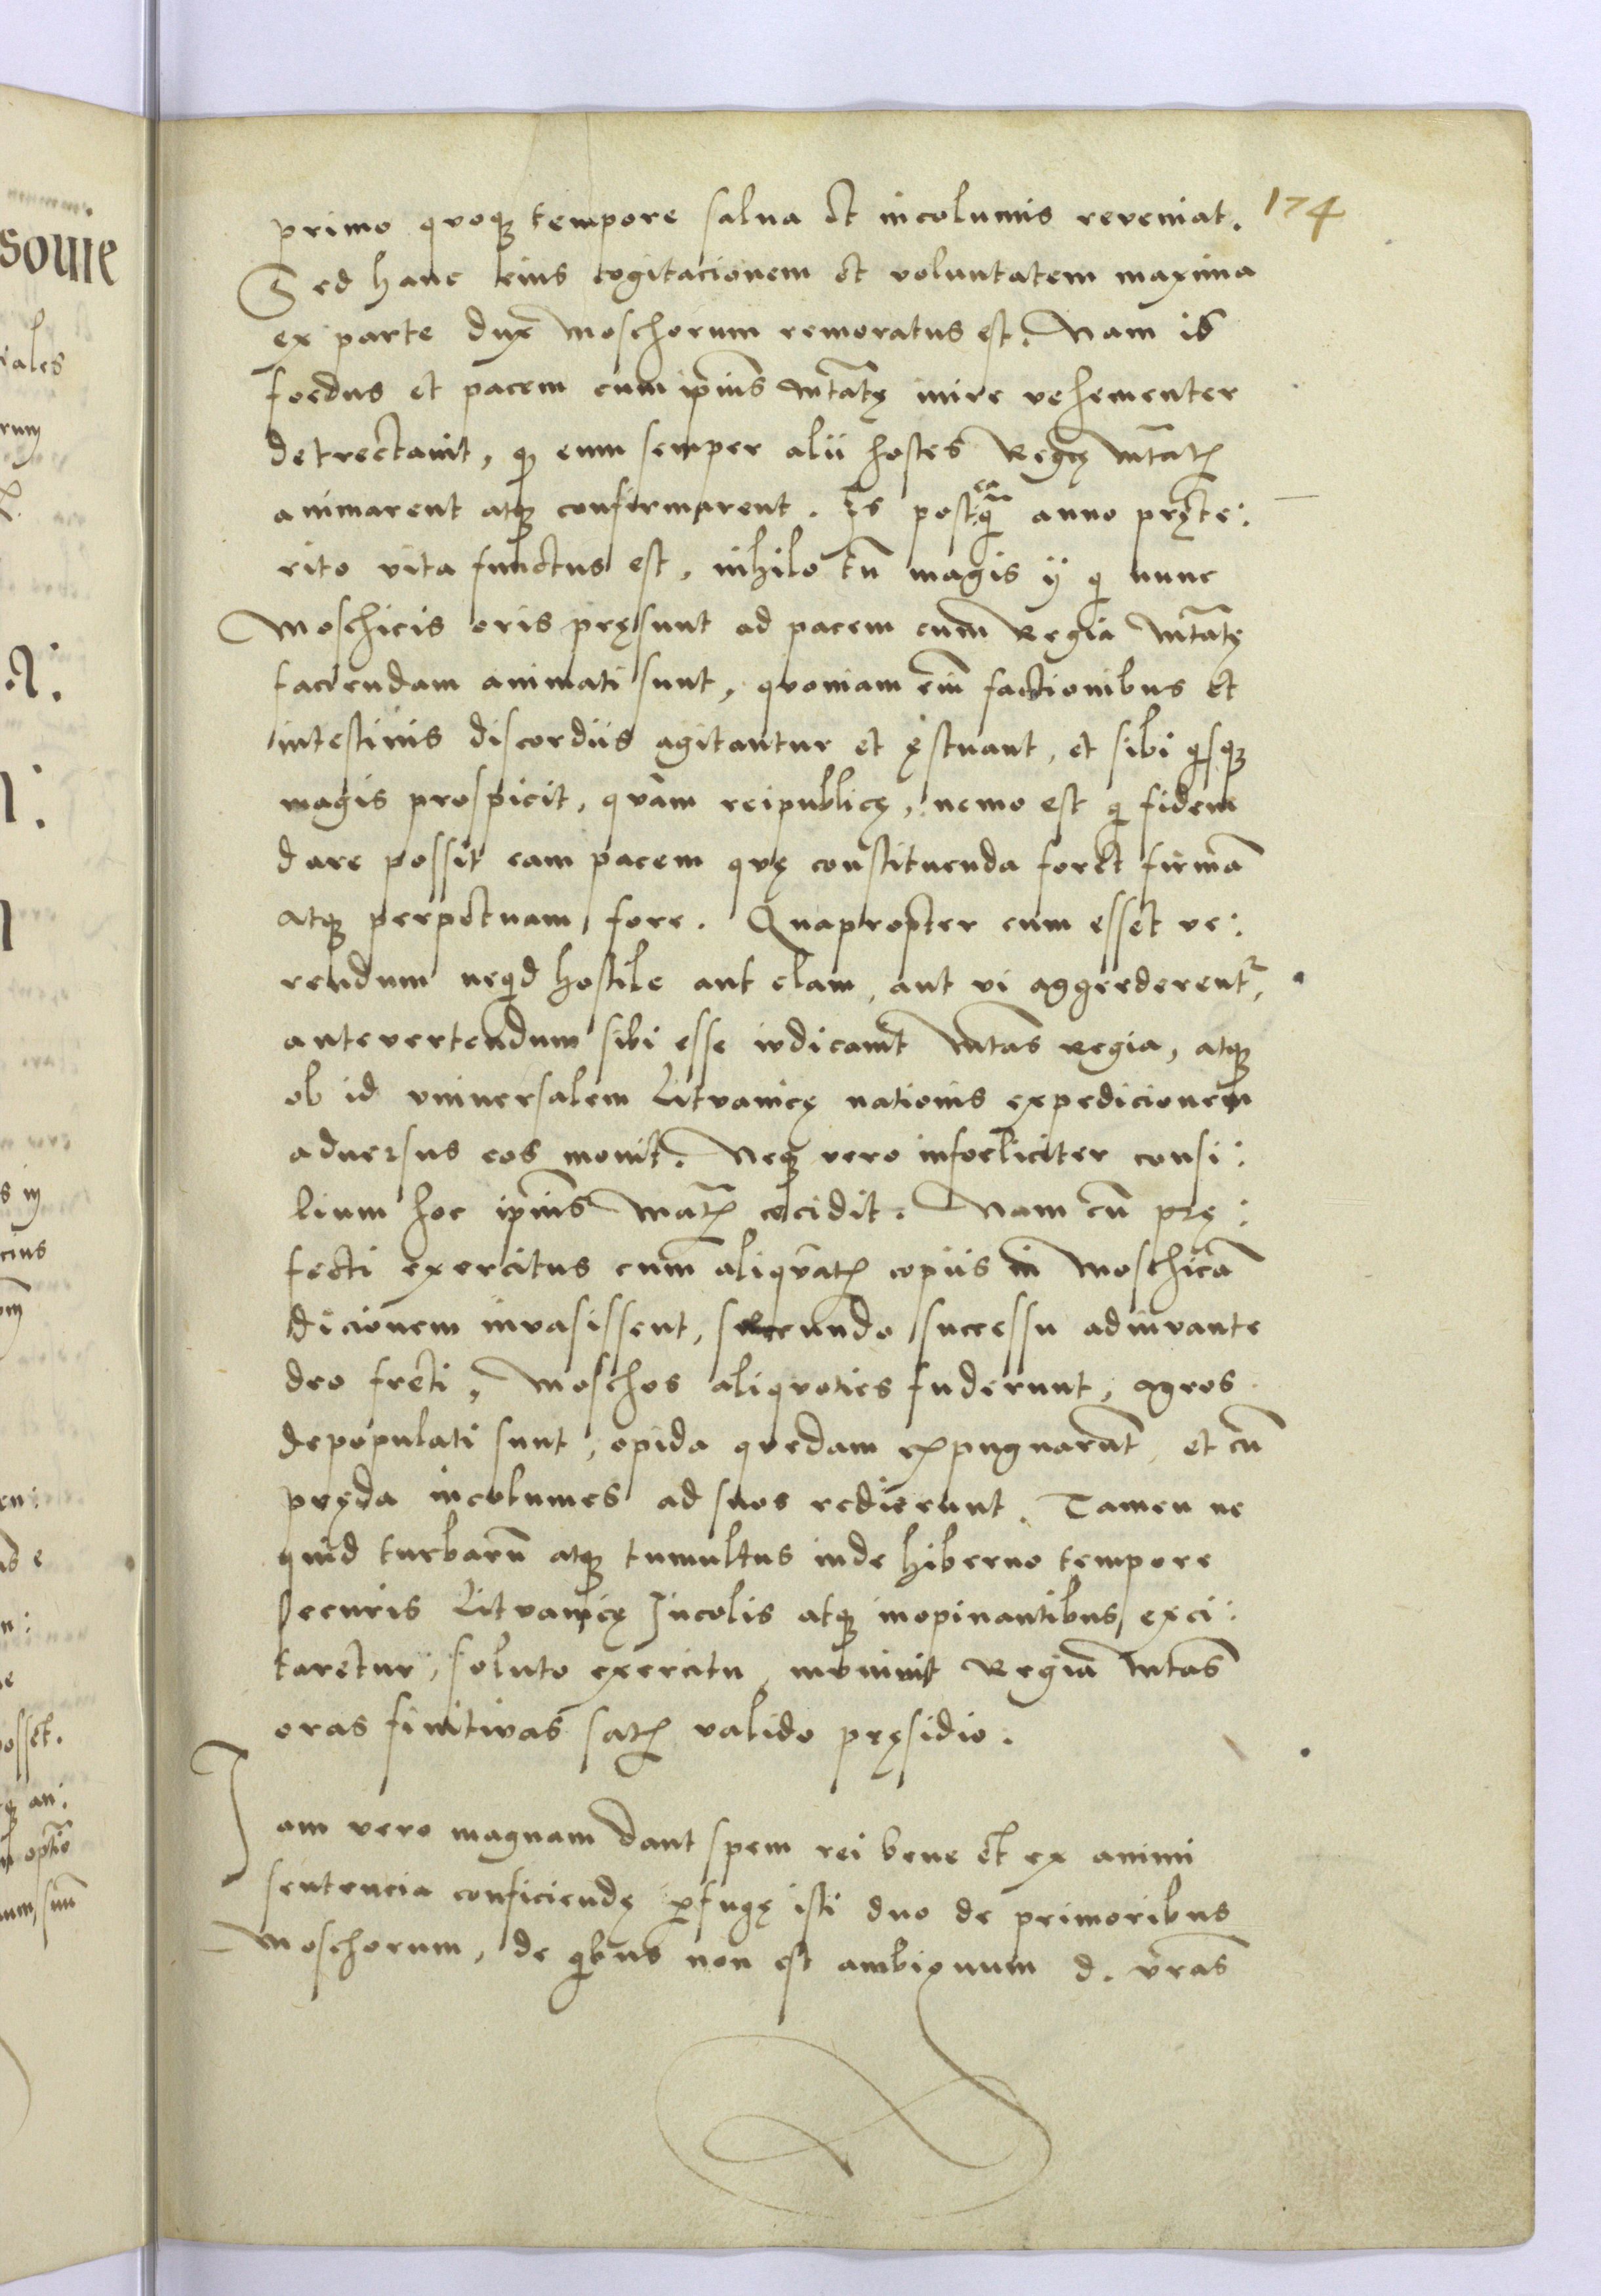 174
primo quoq; tempore salua et incolumis reveniat.
Sed hanc eius cogitacionem et voluntatem maxima
ex parte dux Moschorum remoratus est. Nam is
foedus et pacem cum ipsius Mtate inire vehementer
detrectauit, q eum semper alii hostes Regię Mtatis
animarent atq; confirmarent. Is postea q̃ anno pręte:
rito vita functus est, nihilo tñ magis ij q nunc
Moschicis oris pręsunt ad pacem cum Regia Mtate
faciendam animati sunt, quoniam em̃ factionibus et
intestinis discordiis agitantur et ęstuant, et sibi qsq;
magis prospicit, quam reipublicę, nemo est q fidem
dare possit eam pacem quę constituenda foret firmã
atq; perpetuam fore. Quapropter cum esset ve:
rendum neqd hostile aut clam, aut vi aggrederent̃,
antevertendum sibi esse iudicauit Mtas Regia, atq;
ob id vniuersalem Litvanicę nationis expedicionem
aduersus eos mouit. Neq; vero infoeliciter consi:
lium hoc ipsius Matis cecidit. Nam cũ prę:
fecti exercitus cum aliquãtis copiis in Moschicã
dicionem invasissent, secundo successu adiuvante
deo freti, Moschos aliquoties fuderunt, agros
depopulati sunt, opida quedam expugnarũt, et cũ
pręda incolumes ad suos redierunt. Tamen ne
quid turbarũ atq; tumultus inde hiberno tempore
securis Litvanicę Incolis atq; inopinantibus exci:
taretur, soluto exercitu, munivit Regia Mtas
oras finitivas satis valido pręsidio.
Iam vero magnam dant spem rei bene et ex animi
sentencia conficiendę ꝑfugę isti duo de primoribus
Moschorum, de qbus non est ambiguum d. vras